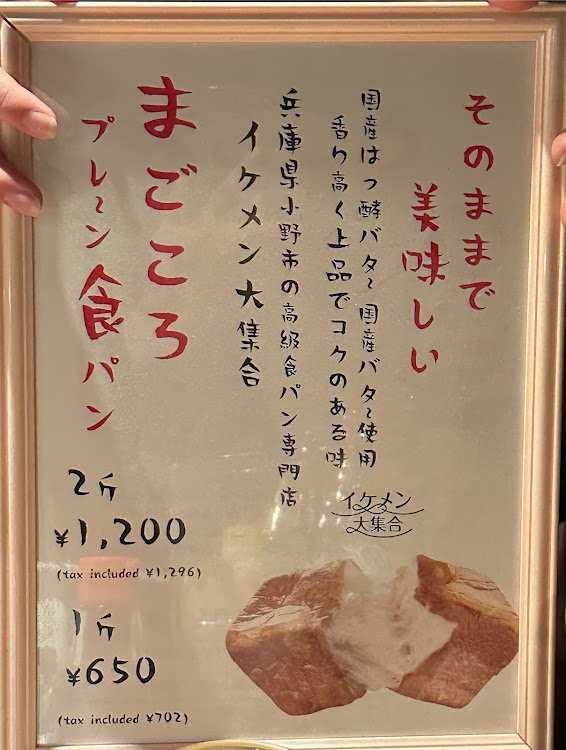 そのままで
美味しい
国産はつ酵バター 国産バター使用
香り高く上品でコクのある味
兵庫県小野市の高級食パン専門店
イケメン大集合
まごころ
プレーン食パン
2斤
¥1,200
(tax included ¥1,296)
1斤
¥650
(tax included ¥702)
イケメン
大集合